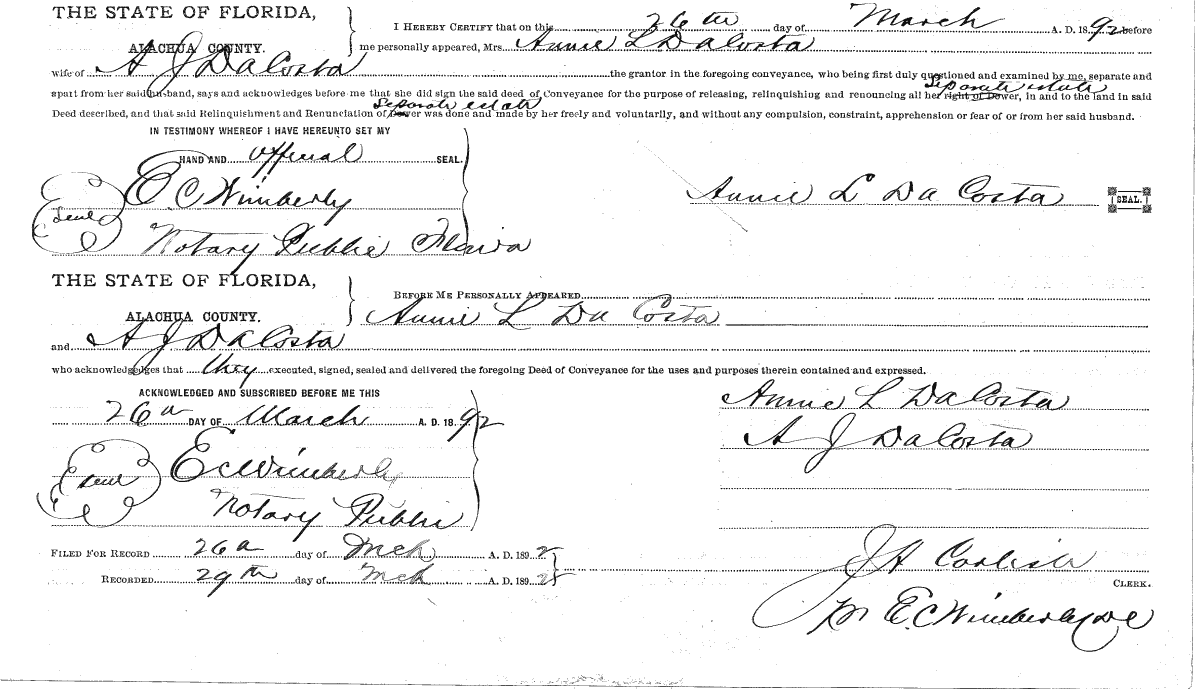 THE STATE OF FLORIDA,
ALACHUA COUNTY.
I HEREBY CERTIFY that on this 26th day of March A. D. 1892 before
me personally appeared, Mrs. Annie L DaCosta
wife of A J DaCosta the grantor in the foregoing conveyance, who being first duly questioned and examined by me, separate and
Seperate estate
apart from her said husband, says and acknowledges before me that she did sign the said deed of Conveyance for the purpose of releasing, relinquishing and renouncing all her right of Dower, in and to the land in said
Seperate estate
Deed described, and that said Relinquishment and Renunciation of Dower was done and made by her freely and voluntarily, and without any compulsion, constraint, apprehension or fear of or from her said husband.
IN TESTIMONY WHEREOF I HAVE HEREUNTO SET MY
HAND AND official SEAL.
E C Wimberly
Annie L Da Costa SEAL.
Seal
Notary Public
THE STATE OF FLORIDA,
ALACHUA COUNTY.
BEFORE ME PERSONALLY APPEARED
Annie L Da Costa
and A J DaCosta
who acknowledges that they executed, signed, sealed and delivered the foregoing Deed of Conveyance for the uses and purposes therein contained and expressed.
ACKNOWLEDGED AND SUBSCRIBED BEFORE ME THIS
26 DAY OF March A. D. 1892
Annie L DaCosta
A J DaCosta
E C Wimberly
Seal
Notary Public
FILED FOR RECORD 26 day of Mch A. D. 1892
RECORDED 29th day of Mch A. D. 1892
J H
CLERK.
E C Wimberly DC